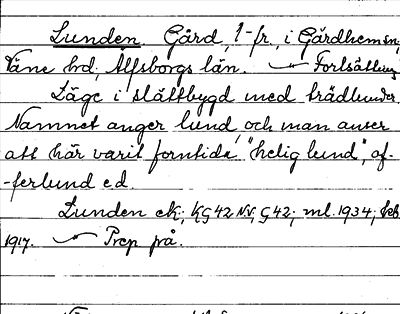 Lunden. Gård, 1-fr., i Gärdhems sn,
Väne hd, Älfsborgs län. — Fortsättning
Läge i slättbygd med trädlunder.
Namnet anger lund, och man anser
att här varit forntida "helig lund", of-
-ferlund e.d.
Lunden ek; KG42 NV, G42; ml. 1934;
1917. — Prep på.